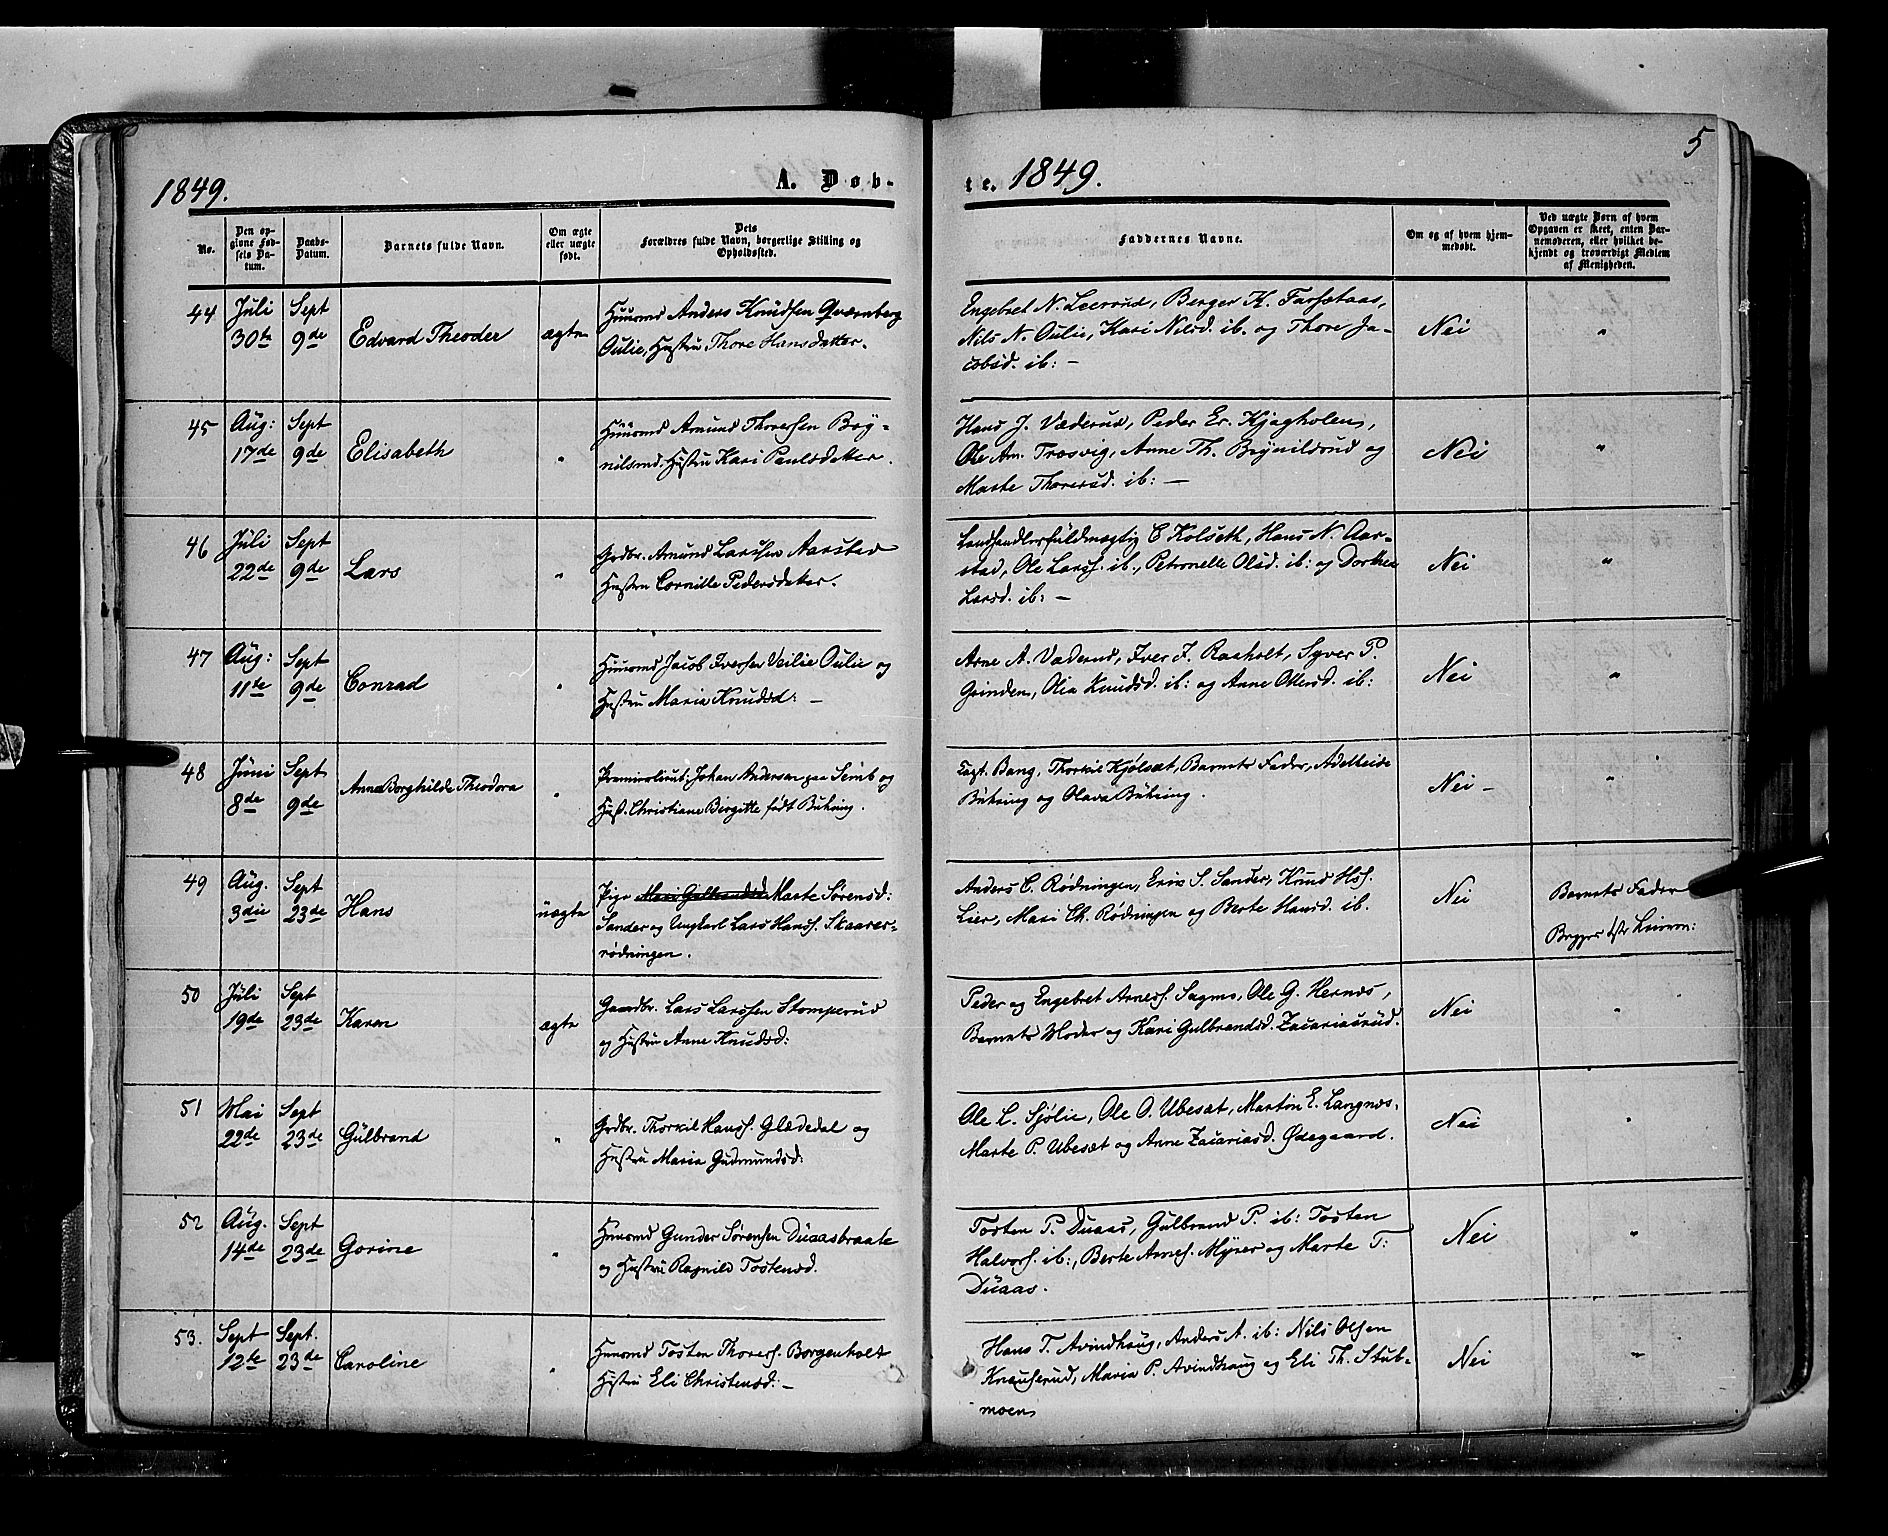 5
1849.
A. Døb-
te. 1849.
No.
Den op-
givne Fød-
sels Da-
tum.
Daabs-
Datum.
Barnets fulde Navn.
Om ægte
eller uægte
født.
Dets
Forældres fulde Navn, borgerlige Stilling og
Opholdssted.
Faddernes Navne.
Om og af hvem hjem-
medøbt.
Ved uægte Børn af hvem
Opgaven er skeet, enten Bar-
nemoderen, eller hvilket be-
kjendt og troværdigt Medlem
af Menigheden.
44
Juli
30te
Sept
9de
Edvard Theoder
ægte
Huusmd Anders Knudsen Qværnberg
Oulie, Hustru Thore Hansdatter.
Engebret N. Leerund, Berger K. Farsetaas,
Nils N. Oulie, Kari Nilsd. ib. og Thore Ja-
cobsd. ib: —
Nei
"
45
Aug:
17de
Sept
9de
Elisabeth
"
Huusmd Amund Thoresen Bøy-
nilsrud. Hustru Kari Paulsdatter.
Hans J. Væderud, Peder Er. Kjægholen,
Ole Am. Trosvig, Anne Th. Brynildsrud og
Marte Thoresd. ib: —
Nei
"
46
Juli
22de
Sept
9de
Lars
"
Grdbr. Amund Larssen Aarstad
Hustru Cornille Pedersdatter.
Landhandlerfuldmægtig C Kolseth, Hans N. Aar-
stad, Ole Larss. ib., Petronelle Olsd. ib: og Dorthea
Larsd. ib: —
Nei
"
47
Aug:
11te
Sept
9de
Conrad
"
Huusmd Jacob Iversen Veilie Oulie og
Hustru Maria Knudsd: —
Arne A. Væderud, Iver J. Raaholt, Syver P.
Grinden, Olea Knudsd. ib: og Anne Olersd. ib:
Nei
"
48
Juni
8de
Sept
9de
Anna Borghilde Theodora
"
Premierlieut: Johan Andersen paa Semb og
Hust. Christiane Birgitte født Buhring.
Capt. Bang, Thorkil Kjølsæt, Barnets Fader, Adelheide
Buhring og Olava Buhring.
Nei —
"
49
Aug.
3die
Sept
23de
Hans
uægte
Pige Mari Gulbrandsd Marte Sørensd:
Sander og Ungkarl Lars Hanss. Skaarer-
rødningen.
Anders C. Rødningen, Eric S. Sander, Knud Hss.
Lier, Mari Ch. Rødningen og Berte Hansd. ib.
Nei
Barnets Fader
Begges 1ste Leierm:
50
Juli
19de
Sept
23de
Karen
ægte
Gaardbr. Lars Larssen Stomperud
og Hustru Anne Knudsd:
Peder og Engebret Arness. Sagmo, Ole G. Hernæs,
Barnets Moder og Kari Gulbrandsd. Zacariasrud.
Nei
"
51
Mai
22de
Sept
23de
Gulbrand
"
Grdbr. Thorkil Hanss. Glædedal og
Hustru Maria Gudmundsd:
Ole L. Sjølie, Ole O. Ubesæt, Martin E. Langnæs.
Marte P. Ubesæt og Anne Zacariasd. Ødegaard.
Nei
"
52
Aug.
14de
Sept
23de
Gorine
"
Huusmd Gunder Sørensen Duaasbraate
og Hustru Ragnild Tostensd.
Tosten P. Duaas, Gulbrand P. ib: Tosten
Halvors. ib:, Berte Arnes. Myrer og Marte T:
Duaas.
Nei
"
53.
Sept
12te
Sept.
23de
Caroline
"
Huusmd Tosten Thoress. Borgenholt
Hustru Eli Christensd: —
Hans T. Avindhaug, Anders A. ib: Nils Olsen
Knauserud, Maria P. Avindhaug og Eli Th. Stub-
moen
Nei
"